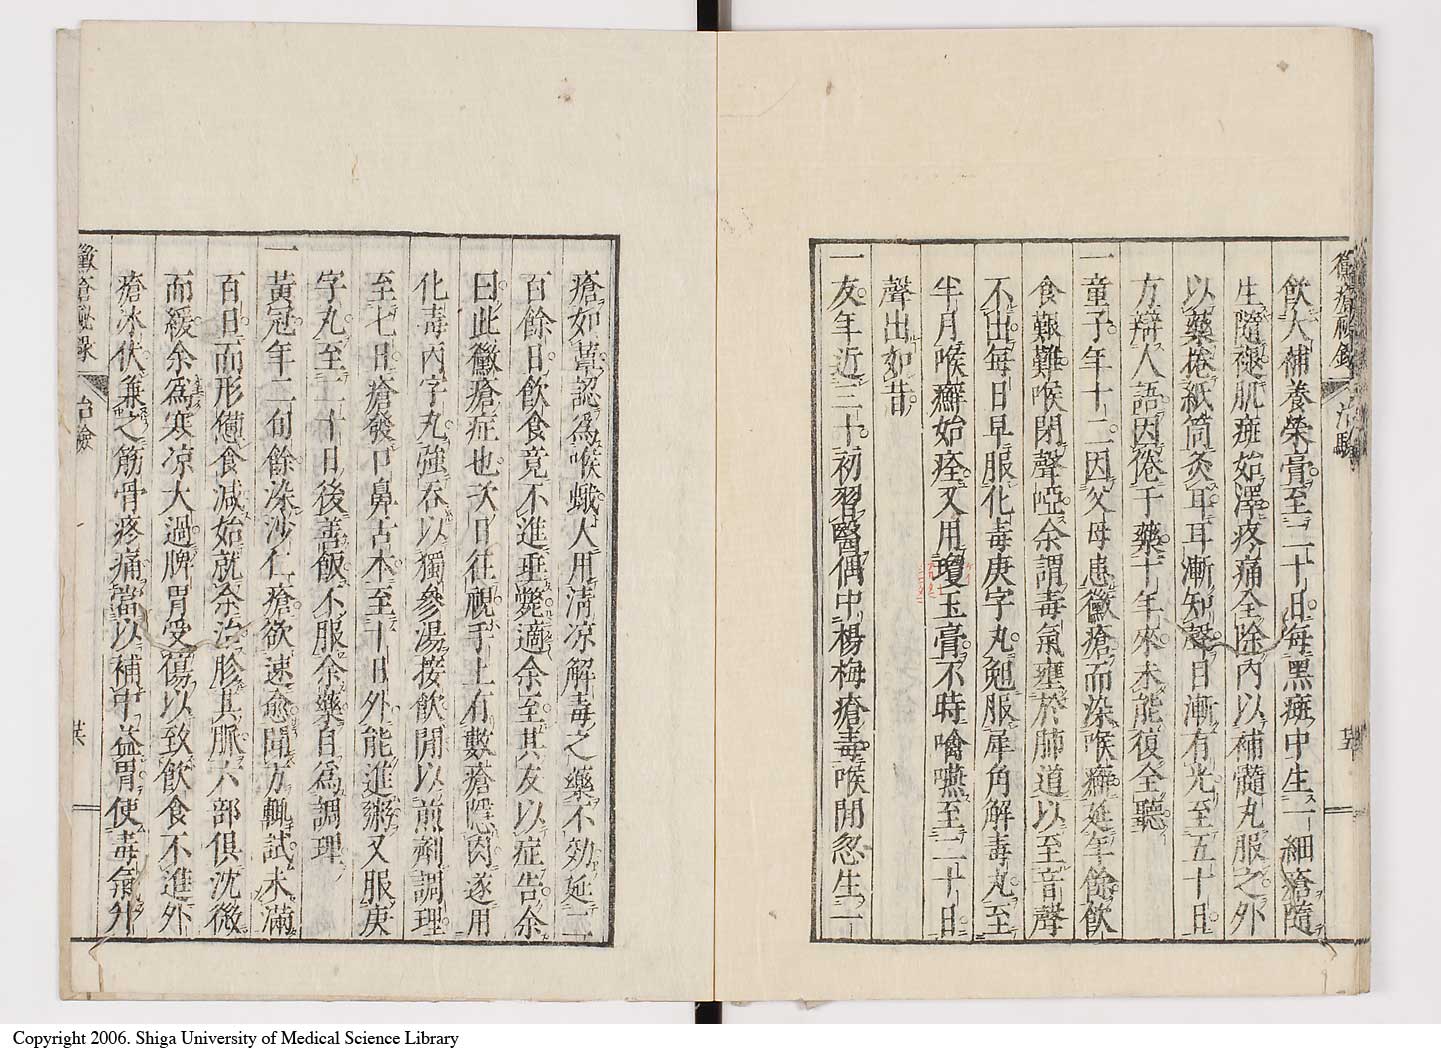 黴瘡秘錄 治驗
飲大補養榮膏至二十日每黑癍中生一細瘡隨
生隨褪肌斑始澤疼痛全除內以補髓丸服之外
以藥捲紙筒灸耳耳漸知聲目漸有光至五十日
方辯人語因倦于藥十年來未能復全聽
一童子年十二因父母患黴瘡而染喉癬延年餘飲
食艱難喉閉聲啞余謂毒氣壅於肺道以至音聲
不出每日早服化毒庚字丸勉服犀角解毒丸至
半月喉癬始痊又用瓊玉膏不時噙嚥至二十日
聲出如昔
一友年近三十初習醫偶中楊梅瘡毒喉間忽生一
瘡如蕈認為喉蛾人用清涼解毒之藥不効延二
百餘日飲食竟不進垂斃適余至其友以症告余
曰此黴瘡症也次日往視手上有數瘡隱肉遂用
化毒丙字丸強吞以獨參湯按飲間以煎劑調理
至七日瘡發口鼻古木至十日外能進粥又服庚
字丸至二十日後善飯不服余藥自為調理
一黃冠年二旬餘染沙仁瘡欲速愈聞方輒試未滿
百日而形憊食減始就余治胗其脈六部俱沈微
而緩余為寒凉大過脾胃受傷以致飲食不進外
瘡冰伏兼之筋骨疼痛當以補中益胃使毒氣外
黴瘡秘錄 治驗